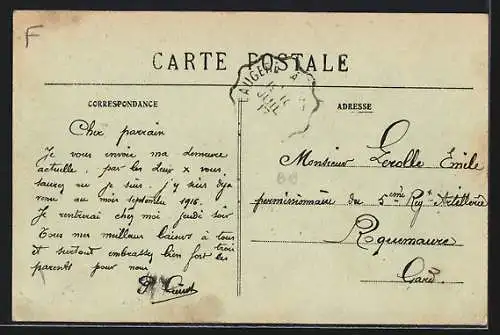 F
CARTE POSTALE
CORRESPONDANCE
ADRESSE
Cher parrain
Je vous envoie ma demeure
actuelle, par les deux x vous
saurez ou je suis. j'y suis déja
venu au mois septembre 1916.
Je rentrerai chez moi jeudi soir
Tous mes meilleurs baisers à tous
et surtout embrassez bien fort les trois
parents pour nous
Monsieur Zerolle Emile
permissionnaire du 5eme Regt Artillerie
Roquemaure
Gard.
JUIL
17